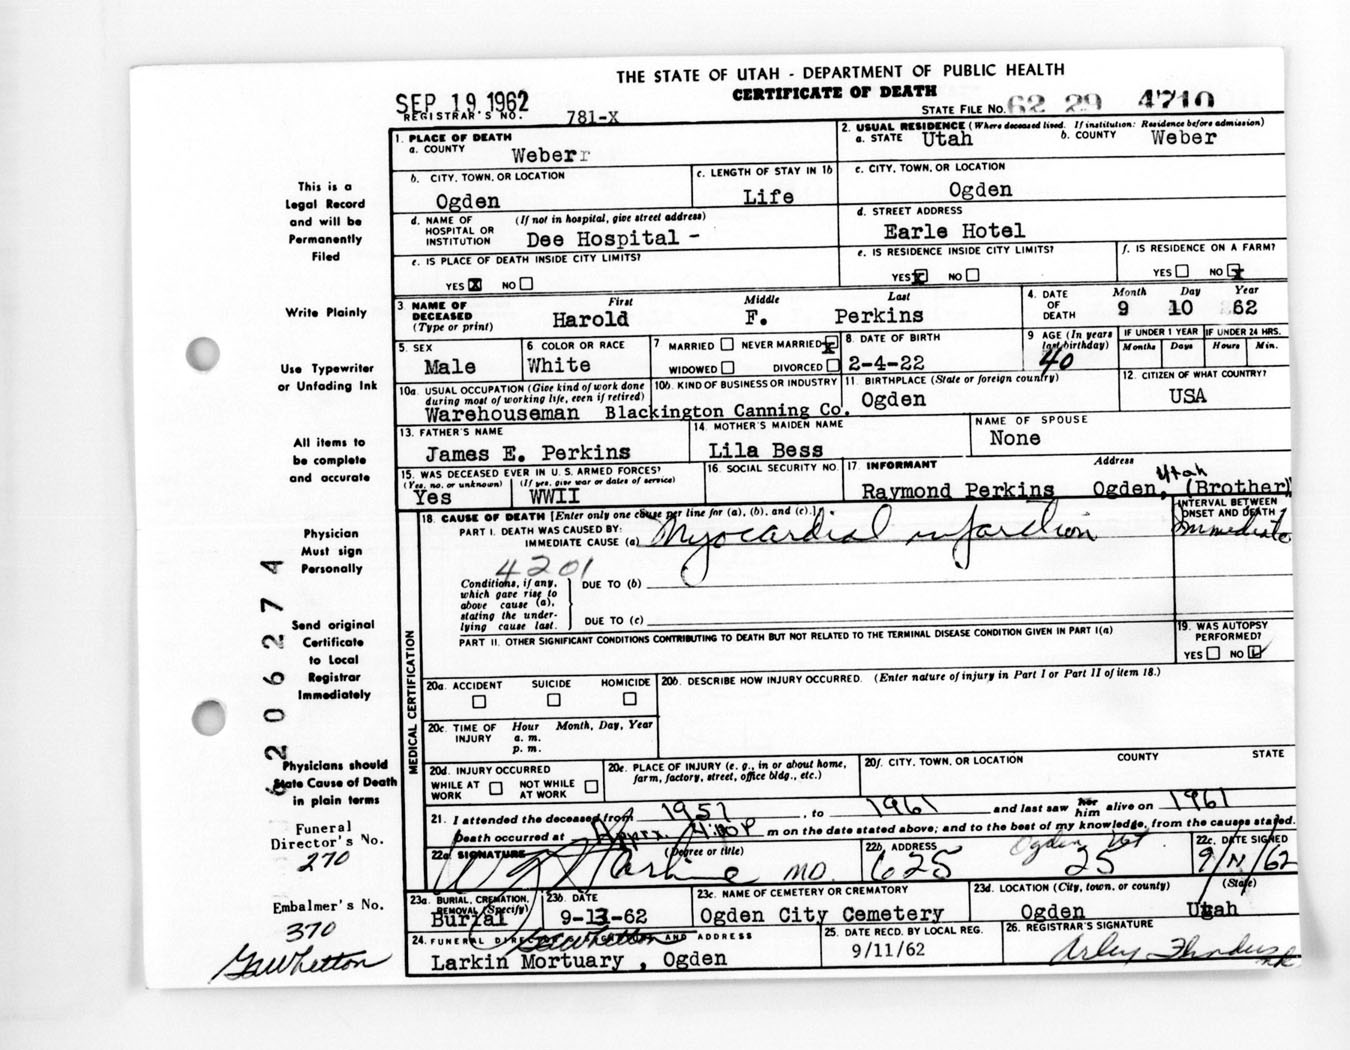 THE STATE OF UTAH - DEPARTMENT OF PUBLIC HEALTH
CERTIFICATE OF DEATH
SEP 19 1962
REGISTRAR'S NO. 781-X
STATE FILE NO. 62 29 4710
1. PLACE OF DEATH
a. COUNTY Weber
2. USUAL RESIDENCE (Where deceased lived. If institution: Residence before admission)
a. STATE Utah b. COUNTY Weber
b. CITY, TOWN, OR LOCATION Ogden
c. LENGTH OF STAY IN 1b Life
c. CITY, TOWN, OR LOCATION Ogden
d. NAME OF HOSPITAL OR INSTITUTION (If not in hospital, give street address) Dee Hospital -
d. STREET ADDRESS Earle Hotel
e. IS PLACE OF DEATH INSIDE CITY LIMITS?
YES X NO
e. IS RESIDENCE INSIDE CITY LIMITS?
YES X NO
f. IS RESIDENCE ON A FARM?
YES NO X
3 NAME OF DECEASED (Type or print) First Middle Last
Harold F. Perkins
4. DATE OF DEATH Month Day Year
9 10 62
5. SEX Male
6 COLOR OR RACE White
7 MARRIED NEVER MARRIED X
WIDOWED DIVORCED
8. DATE OF BIRTH 2-4-22
9 AGE (In years last birthday) 40
IF UNDER 1 YEAR Months Days
IF UNDER 24 HRS. Hours Min.
10a. USUAL OCCUPATION (Give kind of work done during most of working life, even if retired) Warehouseman
10b. KIND OF BUSINESS OR INDUSTRY Blackington Canning Co.
11. BIRTHPLACE (State or foreign country) Ogden
12. CITIZEN OF WHAT COUNTRY? USA
13. FATHER'S NAME James E. Perkins
14. MOTHER'S MAIDEN NAME Lila Bess
NAME OF SPOUSE None
15. WAS DECEASED EVER IN U. S. ARMED FORCES?
(Yes, no, or unknown) (If yes, give war or dates of service)
Yes WWII
16. SOCIAL SECURITY NO.
17. INFORMANT Address
Raymond Perkins Ogden, Utah (Brother)
18. CAUSE OF DEATH [Enter only one cause per line for (a), (b), and (c).]
PART I. DEATH WAS CAUSED BY:
IMMEDIATE CAUSE (a) Myocardial infarction
INTERVAL BETWEEN ONSET AND DEATH
Immediate
4201
Conditions, if any, which gave rise to above cause (a), stating the underlying cause last.
DUE TO (b)
DUE TO (c)
PART II. OTHER SIGNIFICANT CONDITIONS CONTRIBUTING TO DEATH BUT NOT RELATED TO THE TERMINAL DISEASE CONDITION GIVEN IN PART I(a)
19. WAS AUTOPSY PERFORMED?
YES NO
MEDICAL CERTIFICATION
20a. ACCIDENT SUICIDE HOMICIDE
20b. DESCRIBE HOW INJURY OCCURRED. (Enter nature of injury in Part I or Part II of item 18.)
20c. TIME OF INJURY Hour Month, Day, Year
a. m.
p. m.
20d. INJURY OCCURRED
WHILE AT WORK NOT WHILE AT WORK
20e. PLACE OF INJURY (e. g., in or about home, farm, factory, street, office bldg., etc.)
20f. CITY, TOWN, OR LOCATION COUNTY STATE
21. I attended the deceased from 1957, to 1961 and last saw her him alive on 1961
Death occurred at Apprx. 4:00 P m on the date stated above; and to the best of my knowledge, from the causes stated.
22a SIGNATURE (Degree or title) MD.
22b. ADDRESS 625 25 Ogden
22c. DATE SIGNED 9/11/62
23a. BURIAL, CREMATION, REMOVAL (Specify) Burial
23b. DATE 9-13-62
23c. NAME OF CEMETERY OR CREMATORY Ogden City Cemetery
23d. LOCATION (City, town, or county) (State)
Ogden Utah
24. FUNERAL DIRECTOR'S SIGNATURE AND ADDRESS
Larkin Mortuary, Ogden
25. DATE RECD. BY LOCAL REG. 9/11/62
26. REGISTRAR'S SIGNATURE
This is a
Legal Record
and will be
Permanently
Filed
Write Plainly
Use Typewriter
or Unfading Ink
All items to
be complete
and accurate
Physician
Must sign
Personally
Send original
Certificate
to Local
Registrar
Immediately
Physicians should
State Cause of Death
in plain terms
Funeral
Director's No.
270
Embalmer's No.
370
62 06274